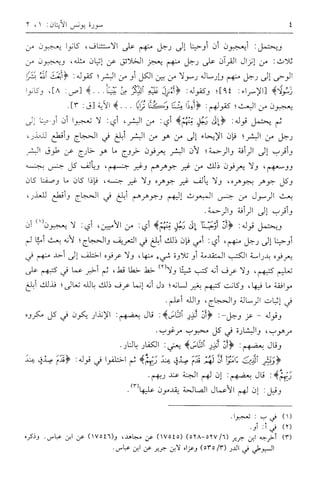 ٤ سورة يونس الآيتان: ١، ٢
ويحتمل: أيعجبون أن أوحينا إلى رجل منهم على الاستئناف، كانوا يعجبون من
ثلاث: من إنزال القرآن على رجل منهم يعجز الخلائق عن إتيان مثله، ويعجبون من
الوحي إلى رجل منهم وإرساله رسولا من بين الكل أو من البشر؛ كقوله: ﴿أَبَعَثَ ٱللَّهُ بَشَرًا
رَّسُولًا﴾ [الإسراء: ٩٤]؛ وكقوله: ﴿أَءُنزِلَ عَلَيْهِ ٱلذِّكْرُ مِنۢ بَيْنِنَا...﴾ [ص: ٨]، وكانوا
يعجبون من البعث؛ كقولهم: ﴿أَءِذَا مِتْنَا وَكُنَّا تُرَابًا ...﴾ الآية [ق: ٣].
ثم يحتمل قوله: ﴿إِلَىٰ رَجُلٍ مِّنْهُمْ﴾ أي: من البشر، أي: لا تعجبوا أن أوحينا إلى
رجل من البشر؛ فإن الإيحاء إلى من هو من البشر أبلغ في الحجاج وأقطع للعذر،
وأقرب إلى الرأفة والرحمة؛ لأن البشر يعرفون خروج ما هو خارج عن طوق البشر
ووسعهم، ولا يعرفون ذلك من غير جوهرهم وغير جنسهم، ويألف كل جنس بجنسه
وكل جوهر بجوهره، ولا يألف غير جوهره ولا غير جنسه، فإذا كان ما وصفنا كان
بعث الرسول من جنس المبعوث إليهم وجوهرهم أبلغ في الحجاج وأقطع للعذر،
وأقرب إلى الرأفة والرحمة.
ويحتمل قوله: ﴿أَنْ أَوْحَيْنَآ إِلَىٰ رَجُلٍ مِّنْهُمْ﴾ أي: من الأميين، أي: لا يعجبون(١) أن
أوحينا إلى رجل منهم، أي: أمي فإن ذلك أبلغ في التعريف والحجاج؛ لأنه بعث أميًّا لم
يعرفوه بدراسة الكتب المتقدمة أو تلاوة شيء منها، ولا عرفوه اختلف إلى أحد منهم في
تعليم كتبهم، ولا عرف أنه كتب شيئًا ولا(٢) خط خطا قط، ثم أخبر عما في كتبهم على
موافقة ما فيها، وكانت كتبهم بغير لسانه؛ دل أنه إنما عرف ذلك بالله تعالى؛ فذلك أبلغ
في إثبات الرسالة والحجاج، والله أعلم.
وقوله - عز وجل -: ﴿أَنْ أَنذِرِ ٱلنَّاسَ﴾: قال بعضهم: الإنذار يكون في كل مكروه
مرهوب، والبشارة في كل محبوب مرغوب.
وقال بعضهم: ﴿أَنْ أَنذِرِ ٱلنَّاسَ﴾ يعني: الكفار بالنار.
﴿وَبَشِّرِ ٱلَّذِينَ ءَامَنُوٓا۟ أَنَّ لَهُمْ قَدَمَ صِدْقٍ عِندَ رَبِّهِمْ﴾ ثم اختلفوا في قوله: ﴿قَدَمَ صِدْقٍ عِندَ
رَبِّهِمْ﴾: قال بعضهم: إن لهم الجنة عند ربهم.
وقيل: إن لهم الأعمال الصالحة يقدمون عليها(٣).
(١) في ب : تعجبوا.
(٢) في أ: أو.
(٣) أخرجه ابن جرير (٦/ ٥٢٧-٥٢٨) (١٧٥٤٥) عن مجاهد، و(١٧٥٤٦) عن ابن عباس. وذكره
السيوطي في الدر (٣/ ٥٣٥) وعزاه لابن جرير عن ابن عباس.